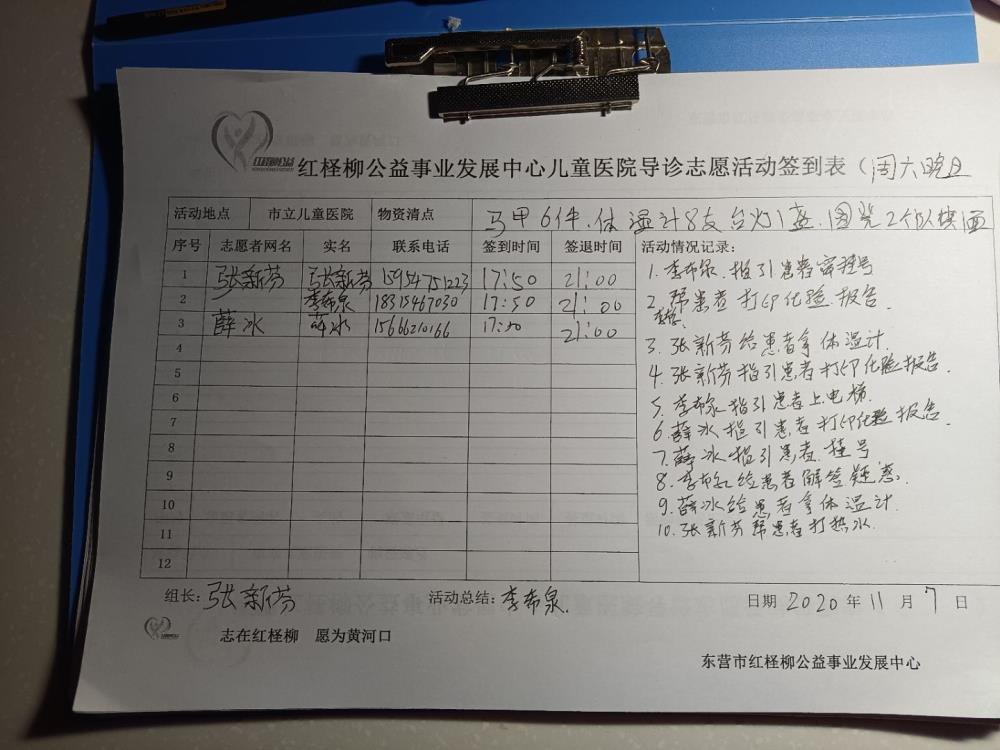 红柽柳公益
红柽柳公益事业发展中心儿童医院导诊志愿活动签到表（周六晚上
活动地点 市立儿童医院 物资清点 马甲6件.体温计8支台灯1盏.图凳2个
序号 志愿者网名 实名 联系电话 签到时间 签退时间 活动情况记录：
1 张新芬 张新芬 15954751223 17:50 21:00
2 李希泉 18315467030 17:50 21:00
3 薛冰 薛冰 15666210166 17:50 21:00
4
5
6
7
8
9
10
11
12
1.李希泉.指引患者窗挂号
2.帮患者打印化验报告.
3.张新芬给患者拿体温计.
4.张新芬指引患者打印化验报告.
5.李希泉指引患者上电梯.
6.薛冰指引患者打印化验报告.
7.薛冰指引患者.挂号
8.李希泉给患者解答疑惑.
9.薛冰给患者拿体温计.
10.张新芬帮患者打热水.
组长：张新芬 活动总结：李希泉. 日期 2020 年 11 月 7 日
志在红柽柳 愿为黄河口
东营市红柽柳公益事业发展中心